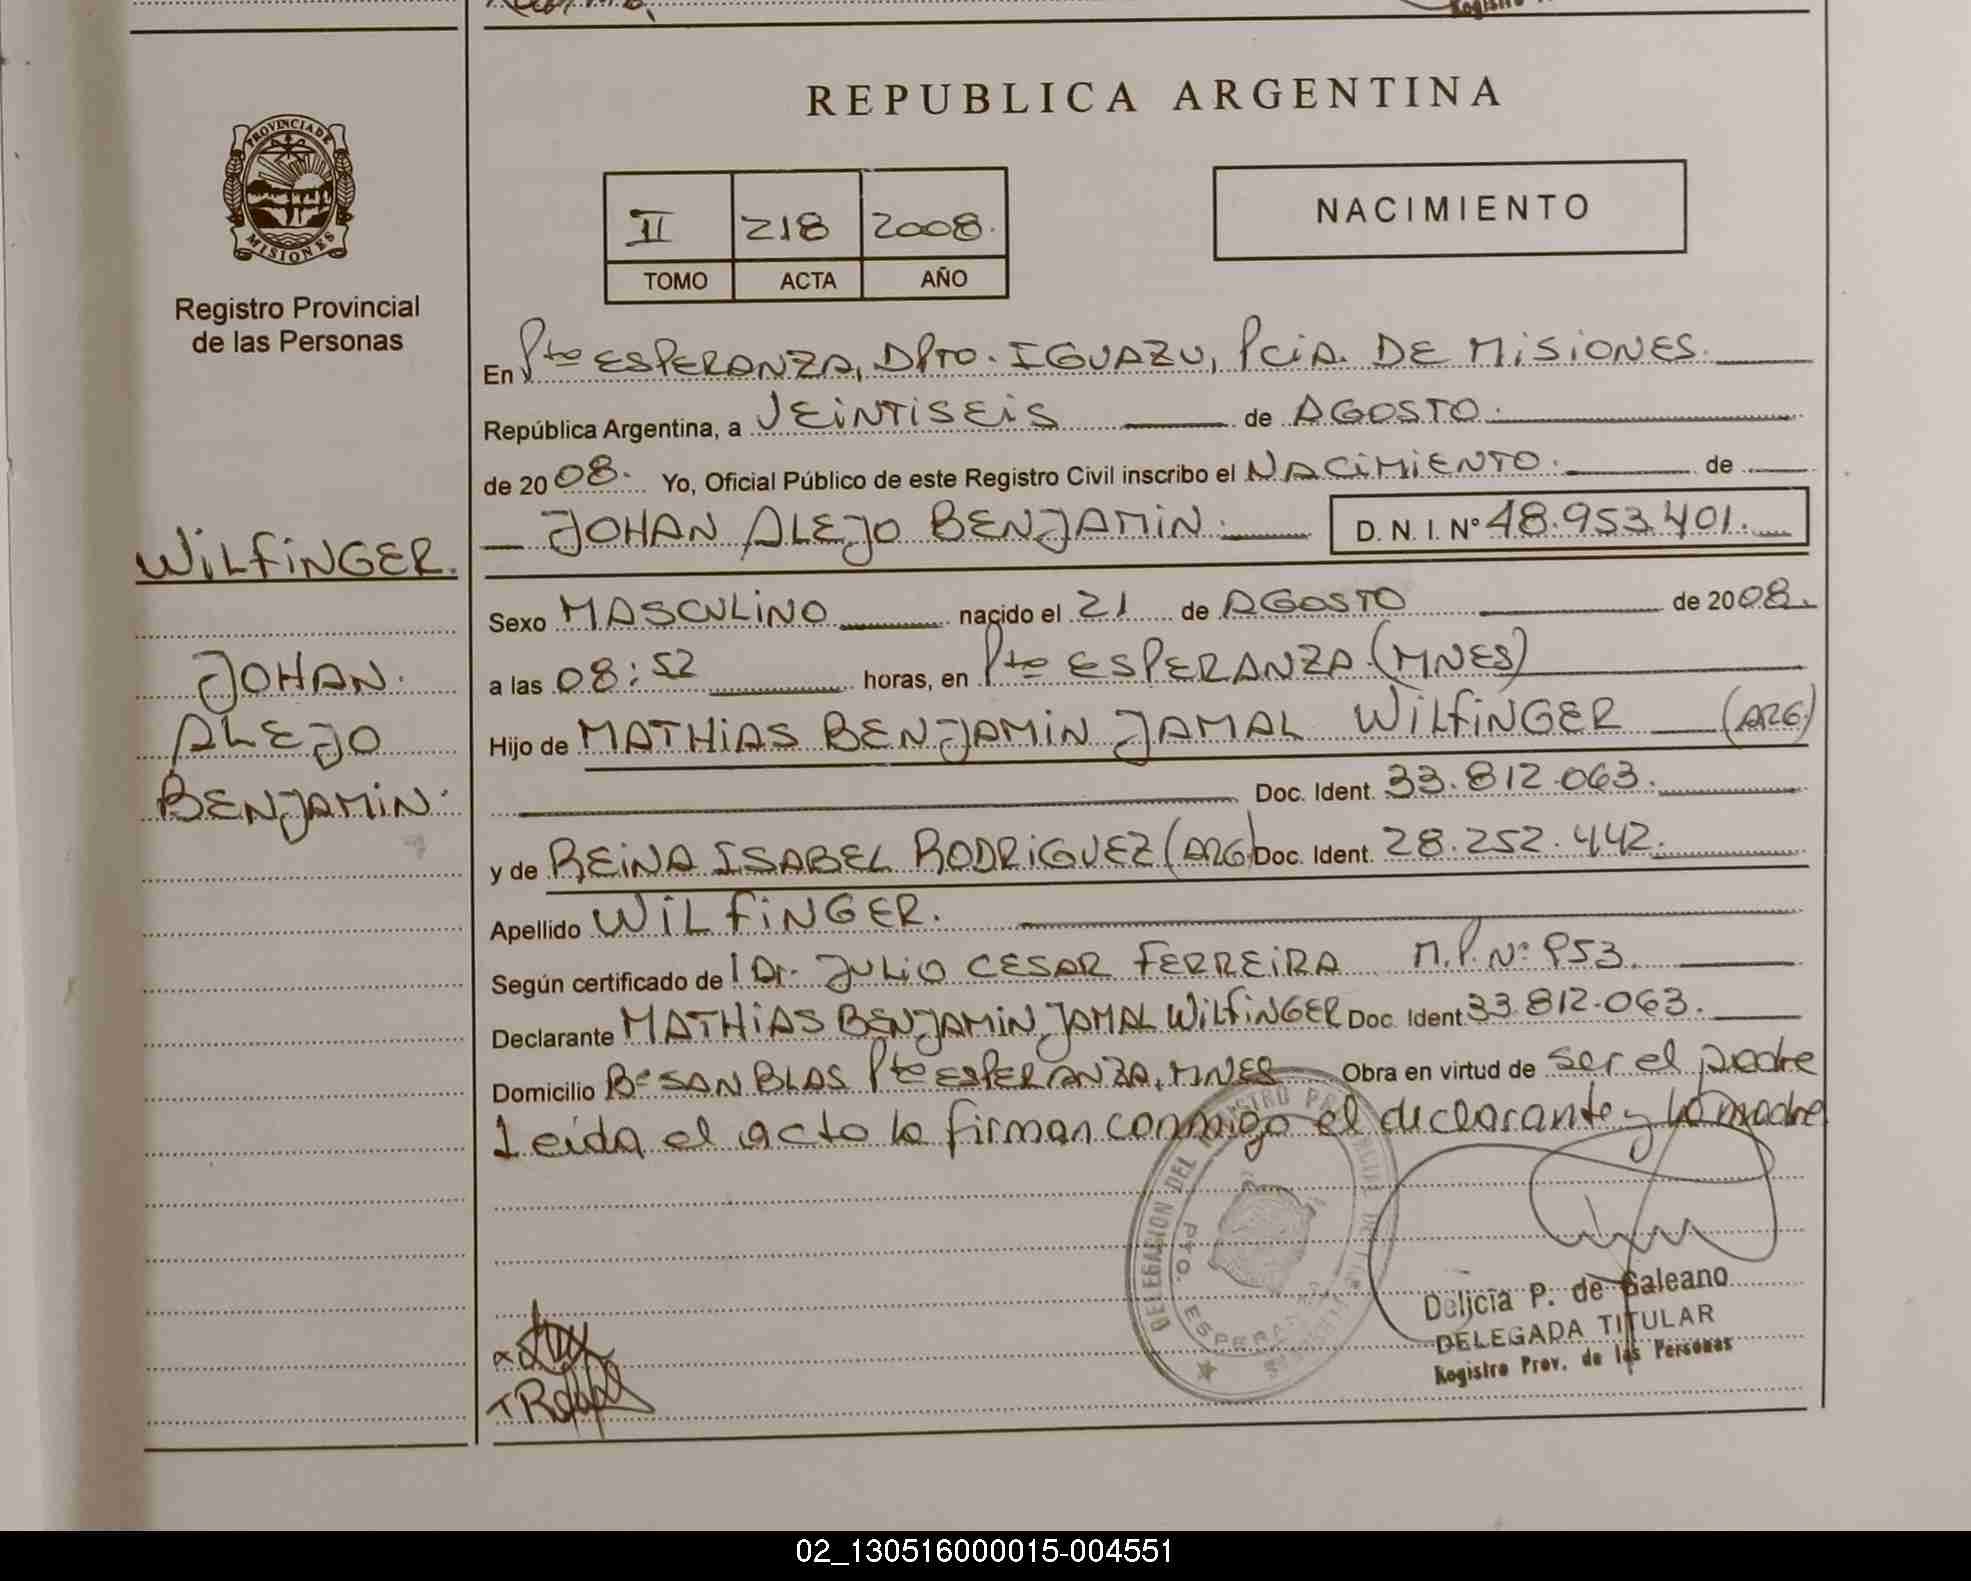 REPUBLICA ARGENTINA
PROVINCIA DE
MISIONES
Registro Provincial
de las Personas
II 218 2008.
TOMO ACTA AÑO
NACIMIENTO
En Pto ESPERANZA, DPTO. IGUAZU, PCIA. DE MISIONES.
República Argentina, a VEINTISEIS de AGOSTO.
de 2008. Yo, Oficial Público de este Registro Civil inscribo el NACIMIENTO. de
JOHAN ALEJO BENJAMIN. D. N. I. Nº 48.953.401.
WILFINGER.
JOHAN.
ALEJO
BENJAMIN.
Sexo MASCULINO nacido el 21 de AGOSTO de 2008.
a las 08:52 horas, en Pto ESPERANZA (MNES)
Hijo de MATHIAS BENJAMIN JAMAL WILFINGER (ARG.)
Doc. Ident. 33.812.063.
y de REINA ISABEL RODRIGUEZ (ARG) Doc. Ident. 28.252.442.
Apellido WILFINGER.
Según certificado de l Dr. JULIO CESAR FERREIRA M.P. Nº 953.
Declarante MATHIAS BENJAMIN JAMAL WILFINGER Doc. Ident 33.812.063.
Domicilio Bº SAN BLAS Pto ESPERANZA, MNES Obra en virtud de ser el padre
Leída el acto lo firman conmigo el declarante y la madre
DELEGACION DEL REGISTRO PROVINCIAL DE
PTO. ESPERANZA
Delicia P. de Galeano
DELEGADA TITULAR
Registro Prov. de las Personas
02_130516000015-004551